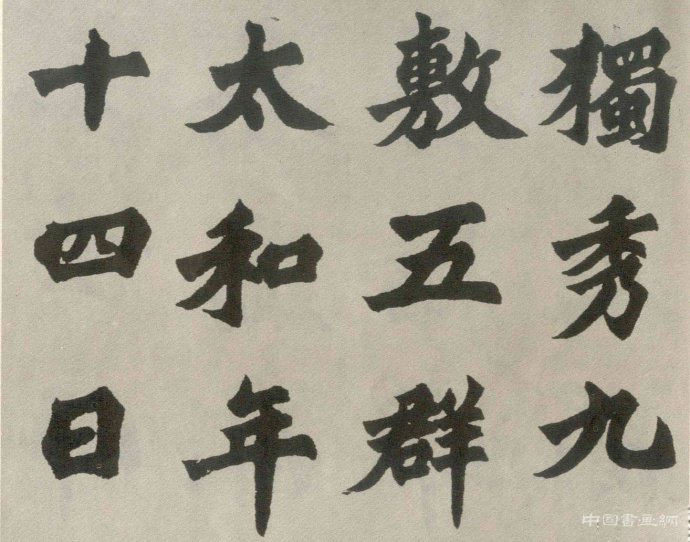 獨秀九
敷五群
太和年
十四日
中国書画網